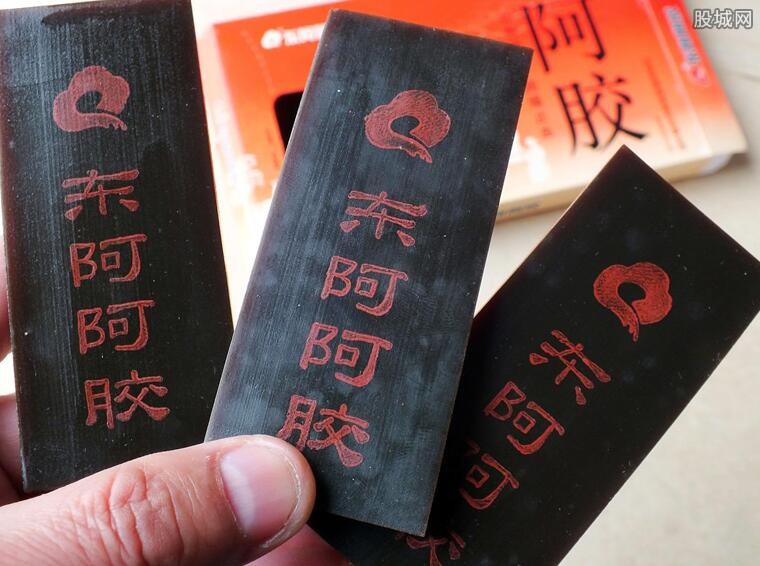 股城网
gucheng.com
东阿阿胶
东阿阿胶
东阿阿胶
阿胶